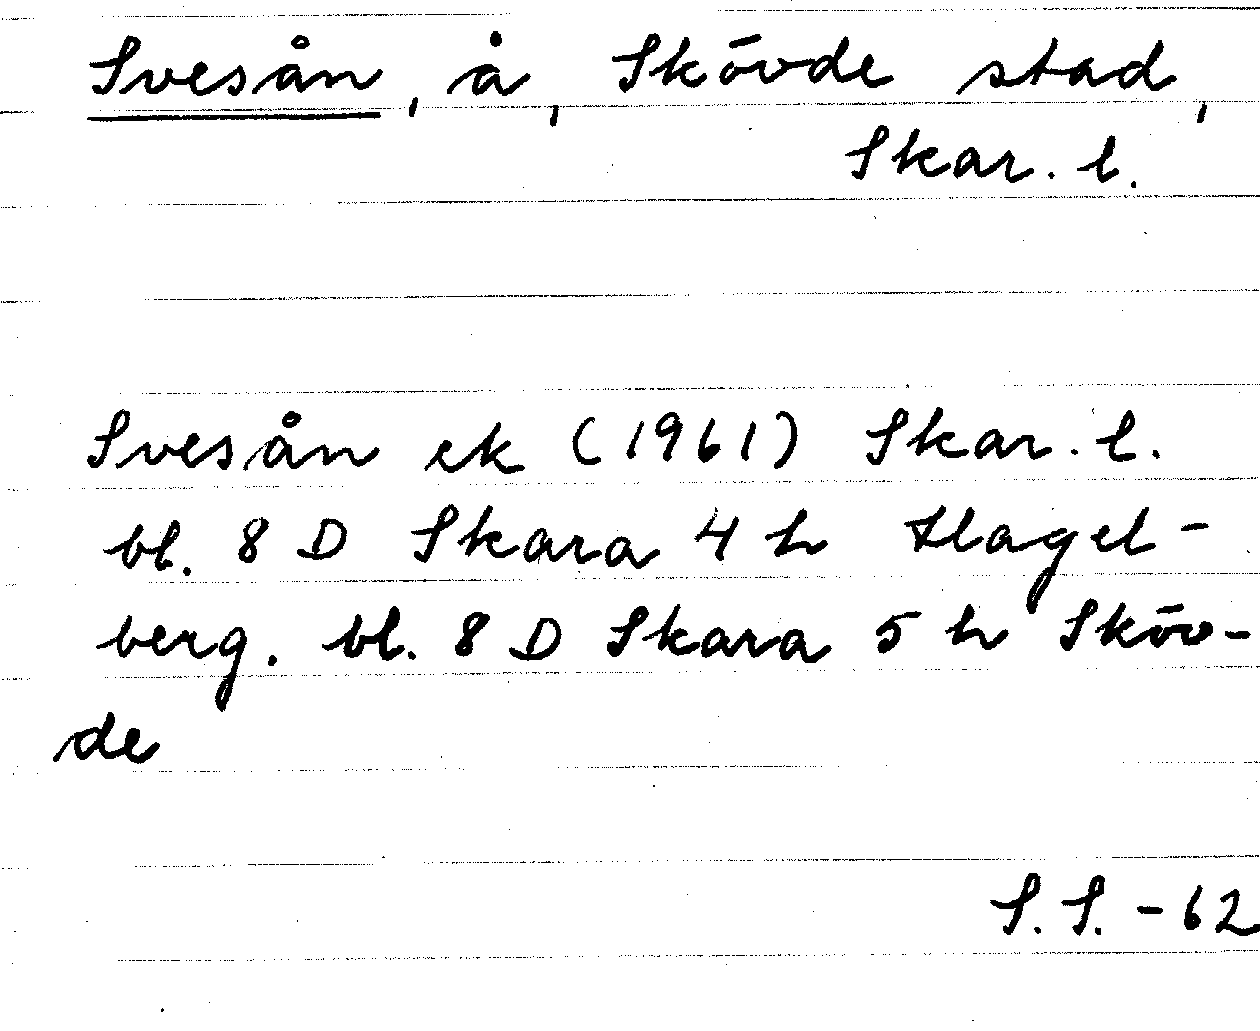 Svesån, å, Skövde stad,
Skar. l.
Svesån ek (1961) Skar. l.
bl. 8 D Skara 4 h Hagel-
berg. bl. 8 D Skara 5 h Sköv-
de
S. S. -62